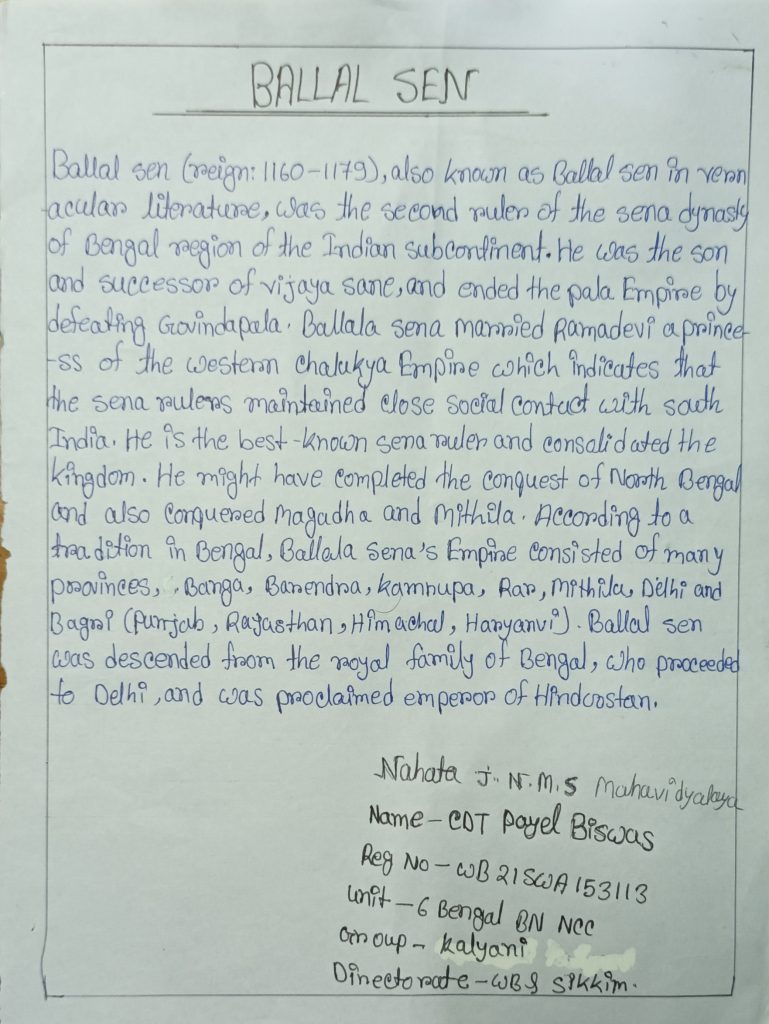 BALLAL SEN
Ballal sen (reign: 1160-1179), also known as Ballal sen in vern
acular literature, was the second ruler of the sena dynasty
of Bengal region of the Indian subcontinent. He was the son
and successor of vijaya sane, and ended the pala Empire by
defeating Govindapala. Ballala sena married Ramadevi a prince-
-ss of the western Chalukya Empire which indicates that
the sena rulers maintained close social contact with south
India. He is the best-known sena ruler and consolidated the
kingdom. He might have completed the conquest of North Bengal
and also conquered Magadha and Mithila. According to a
tradition in Bengal, Ballala Sena's Empire consisted of many
provinces, Banga, Barendra, kamrupa, Rar, Mithila, Delhi and
Bagri (Punjab, Rajasthan, Himachal, Haryanvi). Ballal sen
was descended from the royal family of Bengal, who proceeded
to Delhi, and was proclaimed emperor of Hindoostan.
Nahata J.N.M.S Mahavidyalaya
Name - CDT Payel Biswas
Reg No - WB21SWA153113
Unit - 6 Bengal BN NCC
Group - Kalyani
Directorate - WB & Sikkim.